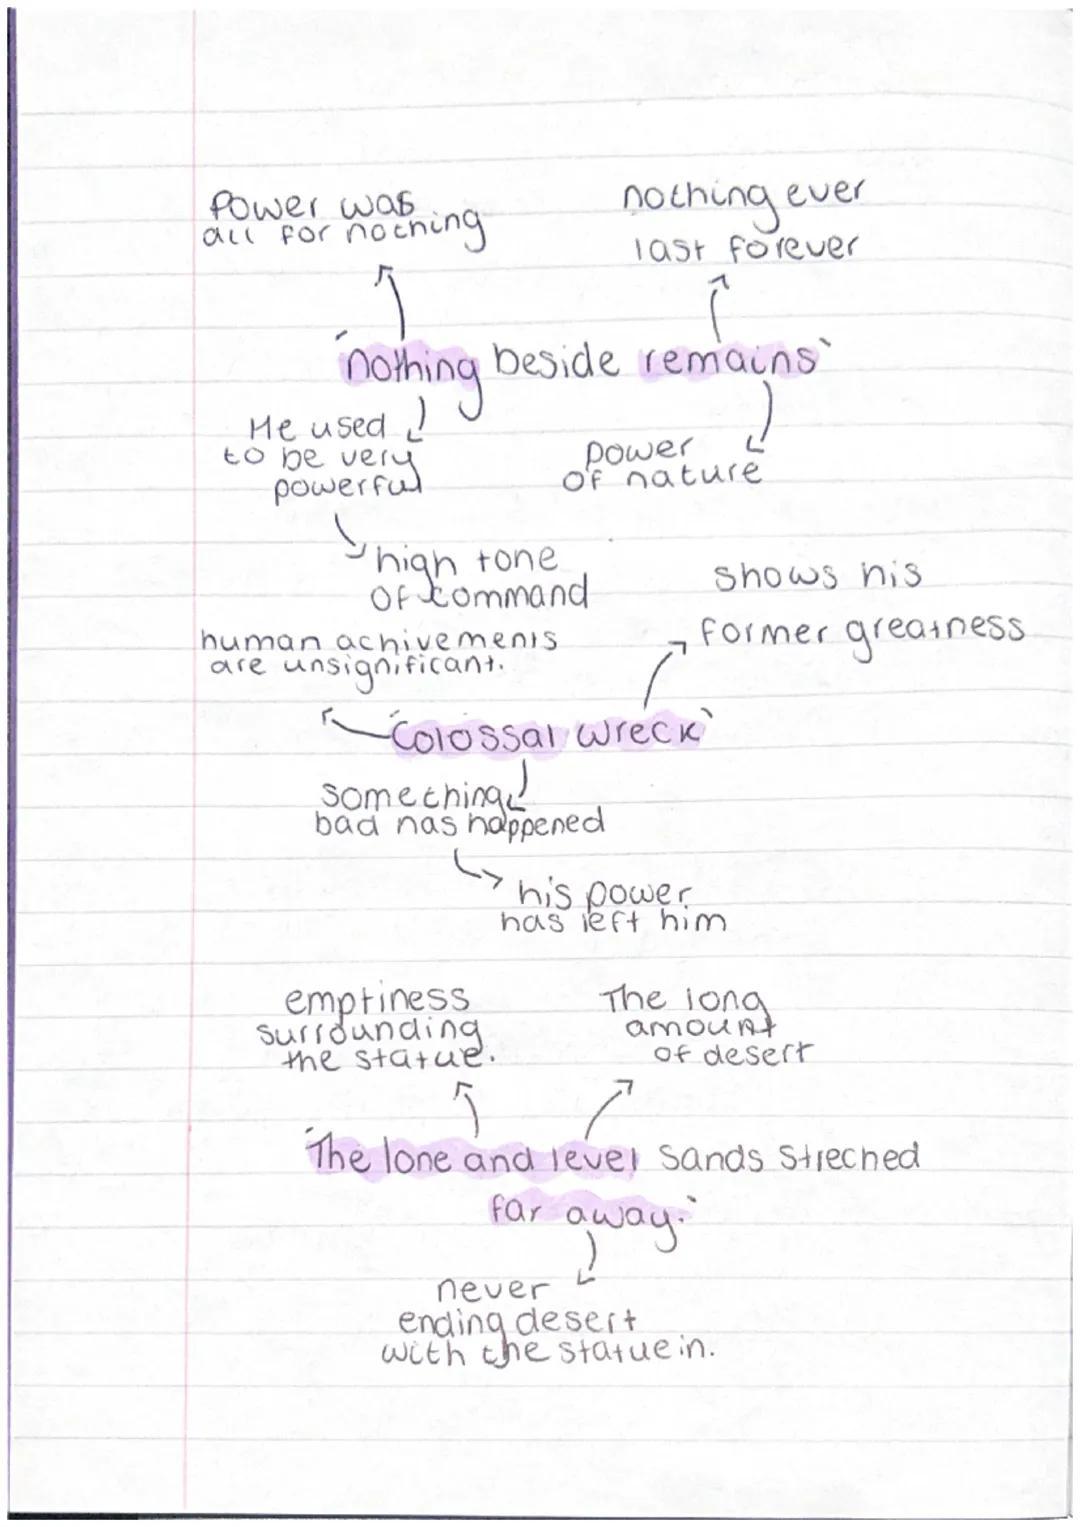 Power was
all for nothing
nothing ever
last forever
'nothing beside remains'
He used
to be very
powerful
power
of nature
high tone
of command
shows his
former greatness
human achivements
are unsignificant.
'Colossal wreck'
something
bad has happened
his power
has left him
emptiness
surrounding
the statue.
The long
amount
of desert
'The lone and level sands streched
far away.'
never
ending desert
with the statue in.